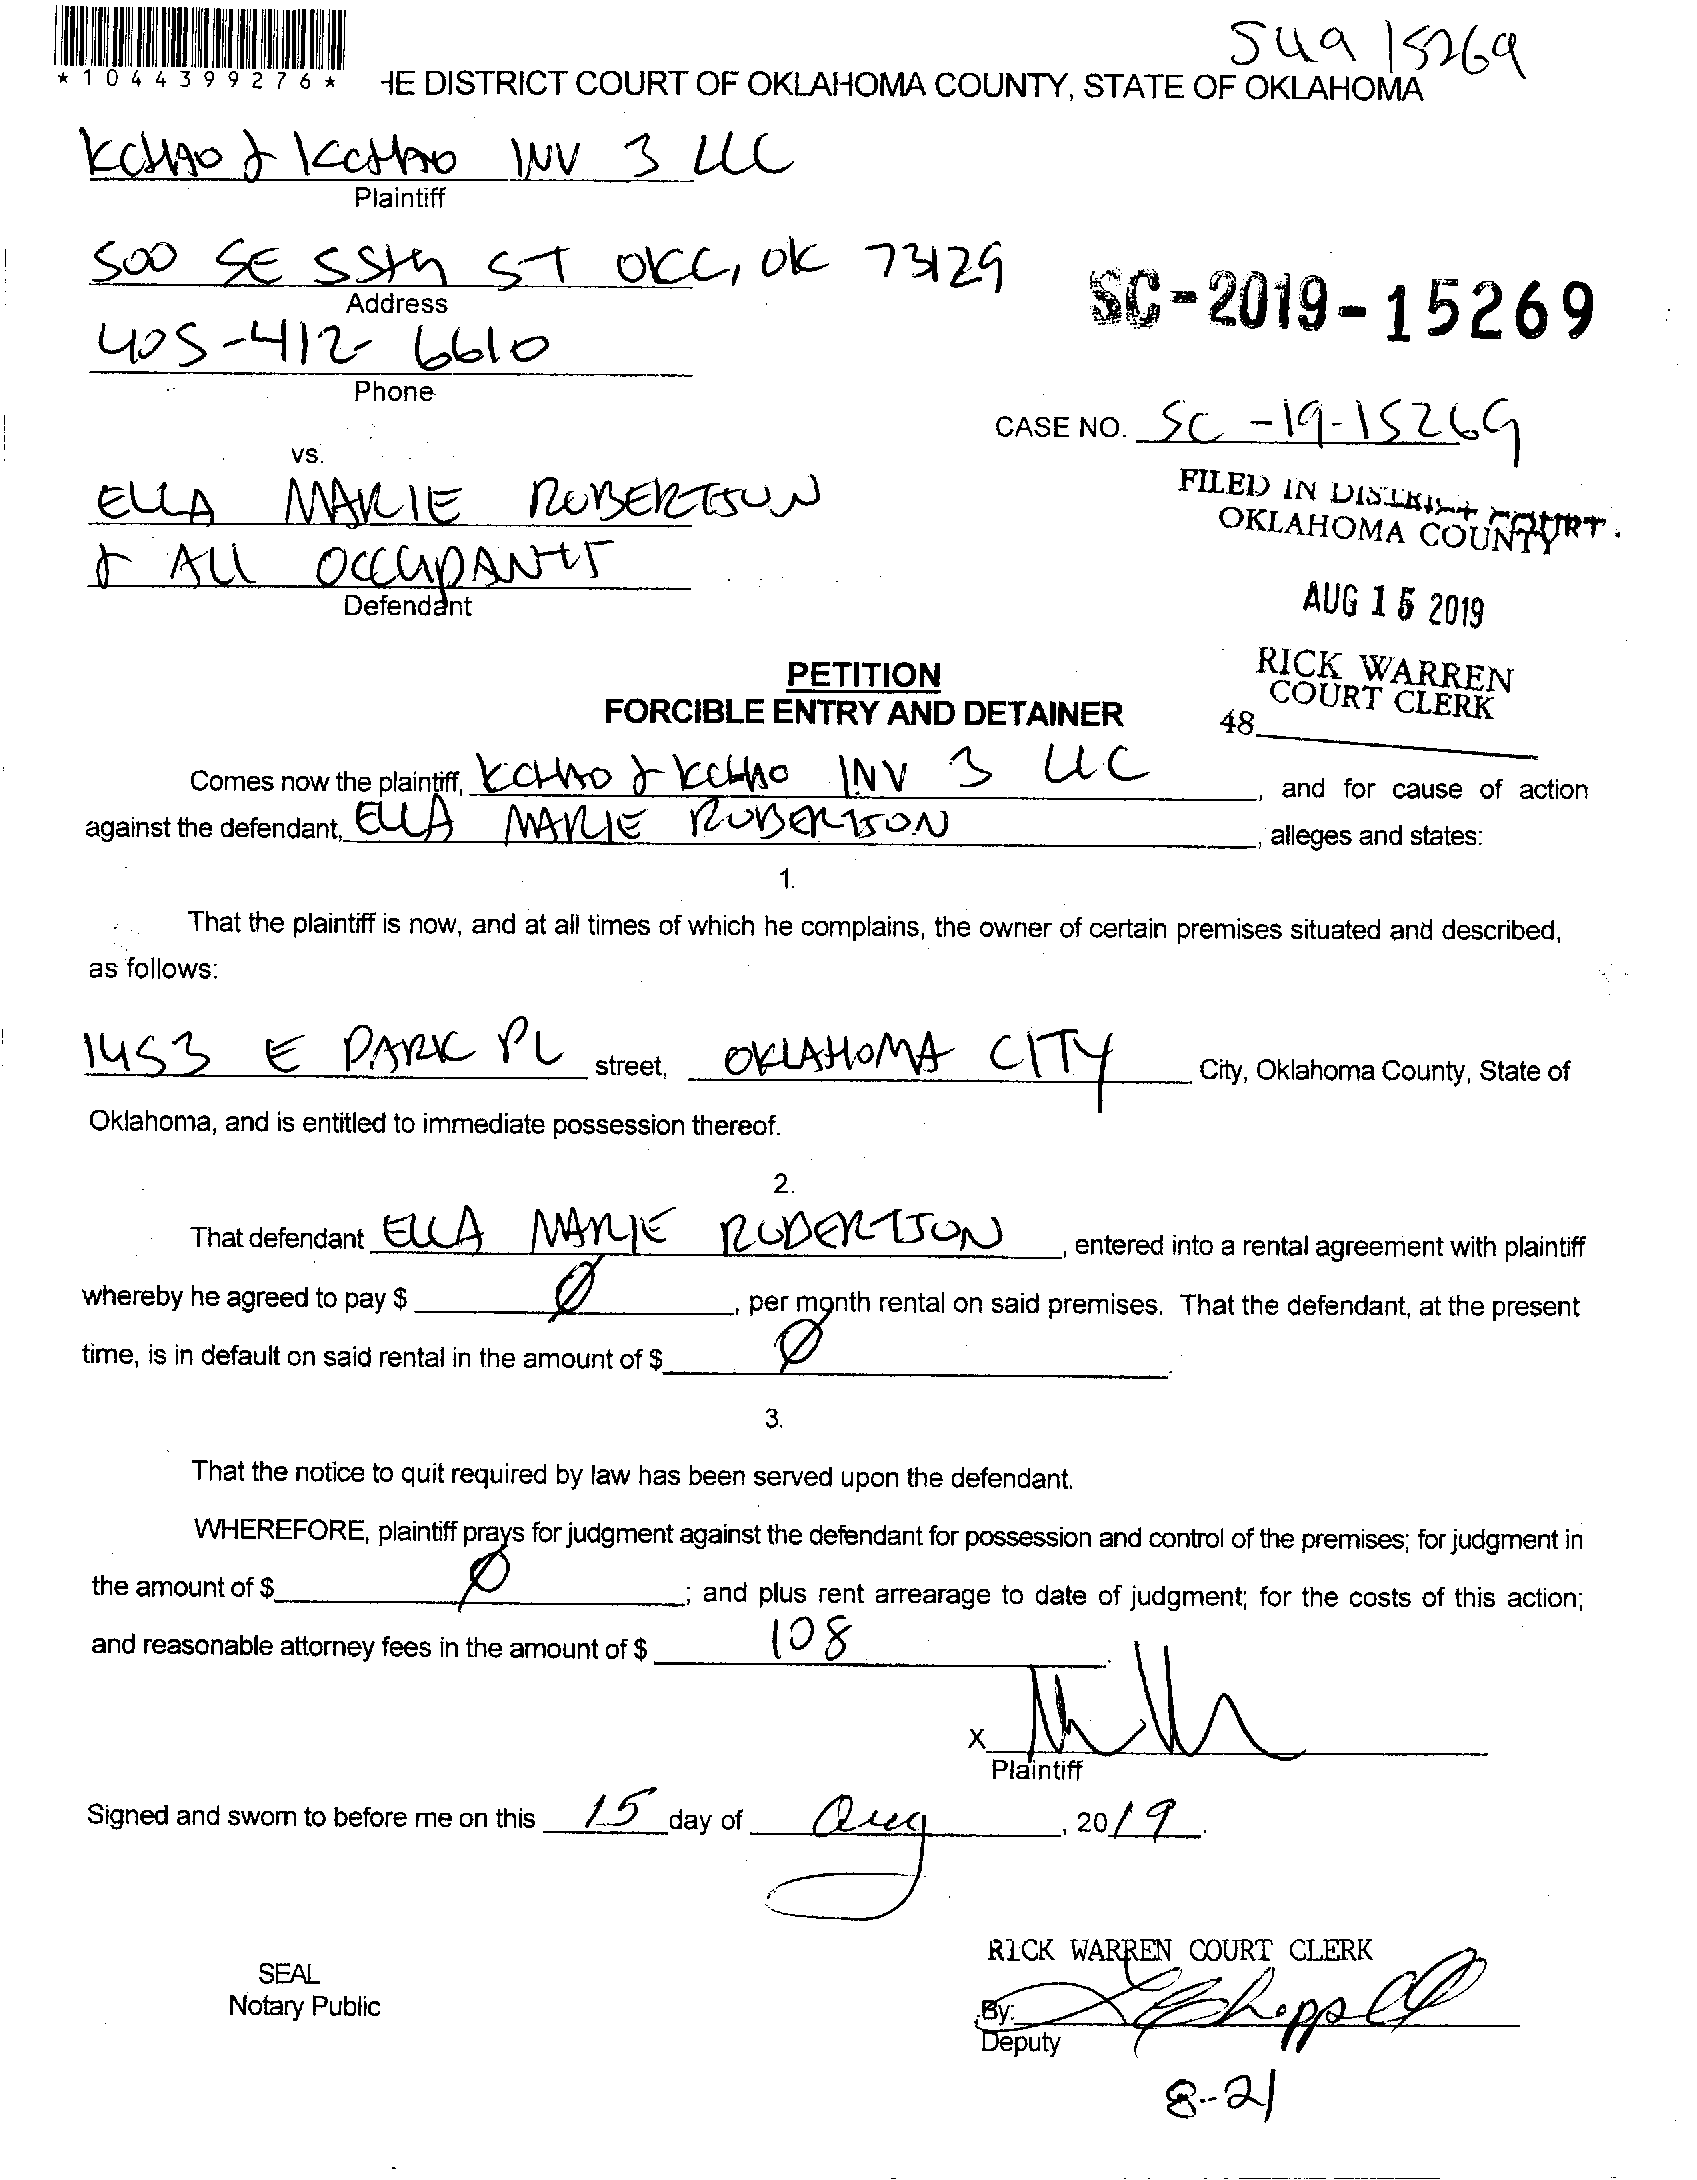 SUA 15269
*1044399276* HE DISTRICT COURT OF OKLAHOMA COUNTY, STATE OF OKLAHOMA
KCHAO & KCHAO INV 3 LLC
Plaintiff
500 SE 55th ST OKC, OK 73129
Address
SC-2019-15269
405-412-6610
Phone
CASE NO. SC-19-15269
vs.
ELLA MARIE ROBERTSON
& ALL OCCUPANTS
Defendant
FILED IN DISTRICT COURT
OKLAHOMA COUNTY
AUG 15 2019
RICK WARREN
COURT CLERK
48
PETITION
FORCIBLE ENTRY AND DETAINER
Comes now the plaintiff, KCHAO & KCHAO INV 3 LLC, and for cause of action
against the defendant, ELLA MARIE ROBERTSON, alleges and states:
1.
That the plaintiff is now, and at all times of which he complains, the owner of certain premises situated and described,
as follows:
1453 E PARK PL street, OKLAHOMA CITY City, Oklahoma County, State of
Oklahoma, and is entitled to immediate possession thereof.
2.
That defendant ELLA MARIE ROBERTSON, entered into a rental agreement with plaintiff
whereby he agreed to pay $ Ø, per month rental on said premises. That the defendant, at the present
time, is in default on said rental in the amount of $ Ø.
3.
That the notice to quit required by law has been served upon the defendant.
WHEREFORE, plaintiff prays for judgment against the defendant for possession and control of the premises; for judgment in
the amount of $ Ø; and plus rent arrearage to date of judgment; for the costs of this action;
and reasonable attorney fees in the amount of $ 108.
X
Plaintiff
Signed and sworn to before me on this 15 day of Aug, 2019.
RICK WARREN COURT CLERK
SEAL
Notary Public
By:
Deputy
8-21